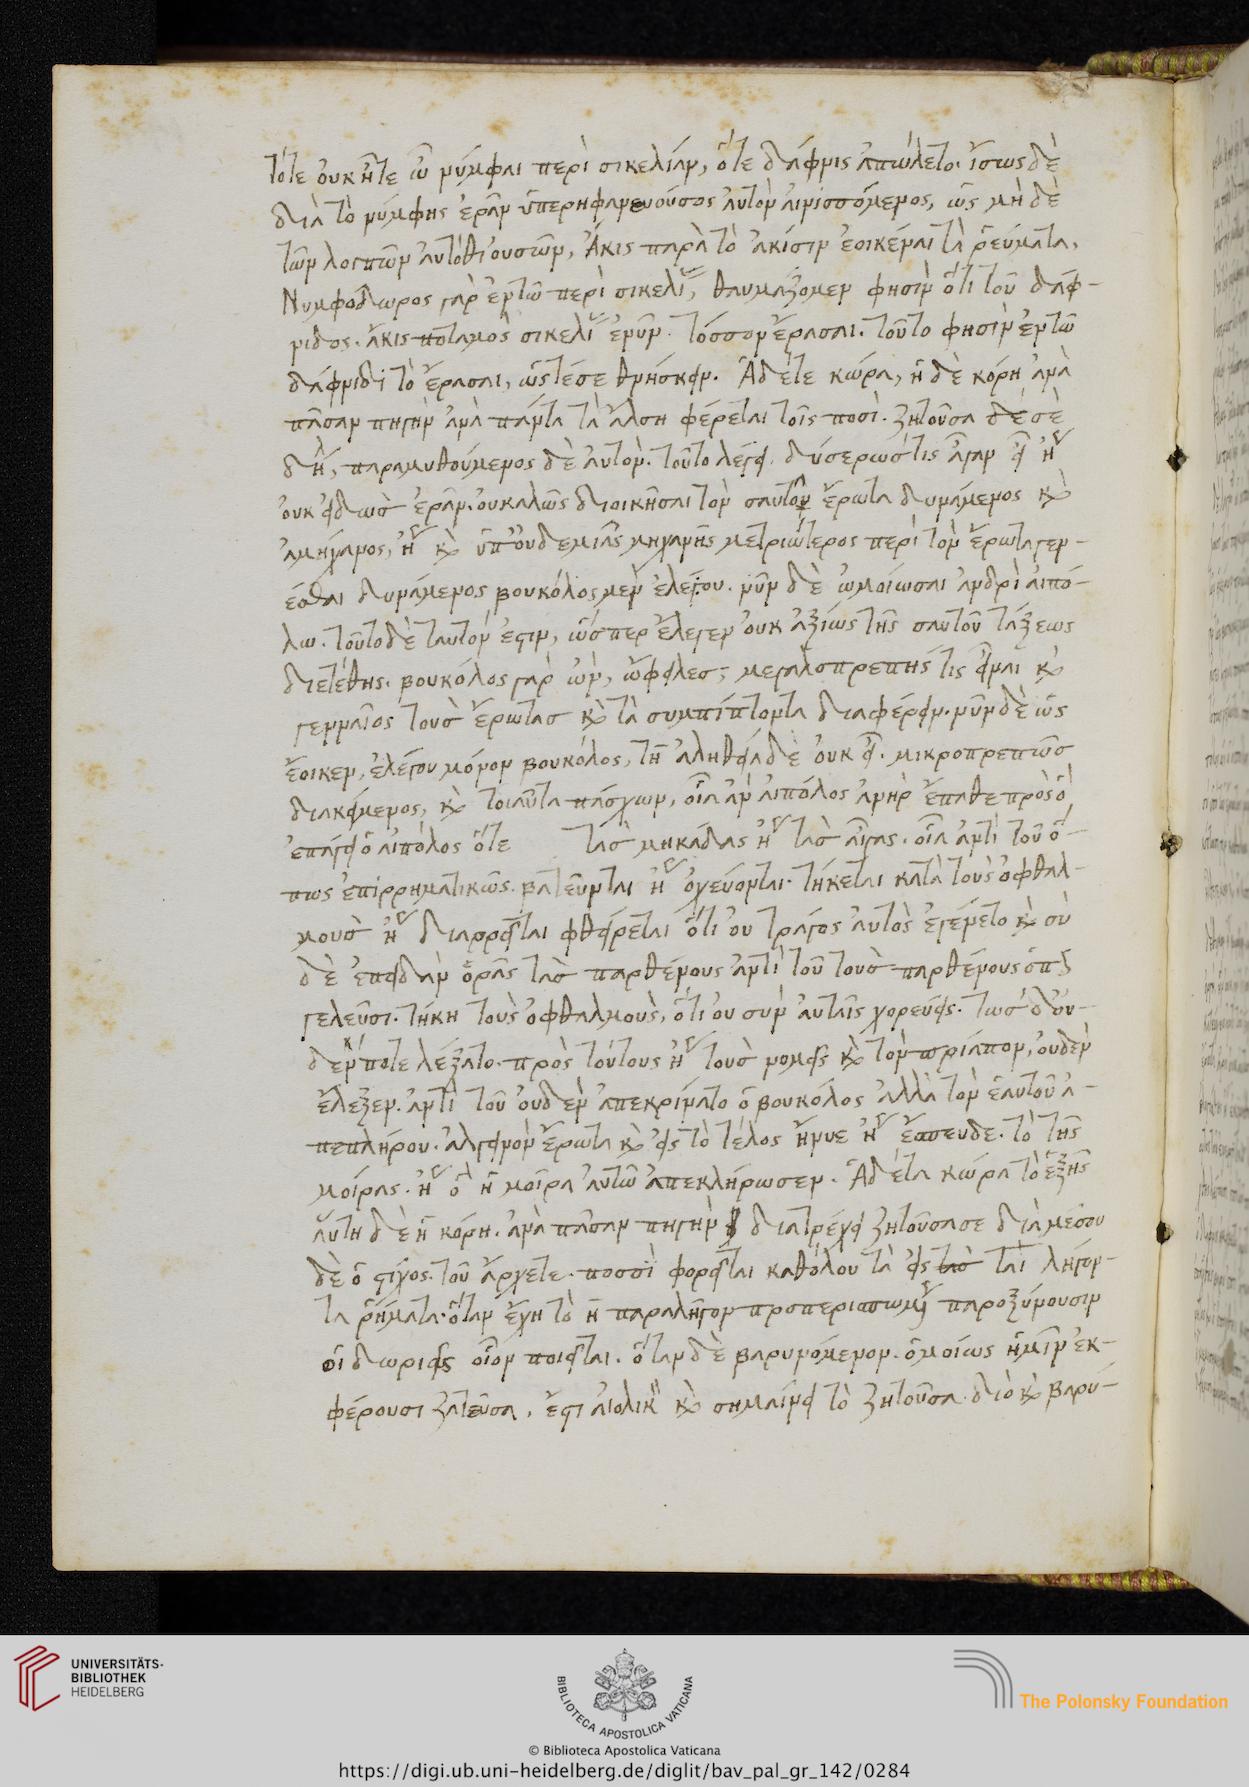 τότε οὐκ ἦτε ὦ νύμφαι περὶ σικελίαν, ὅτε δάφνις ἀπώλετο. ἴσως δὲ
διὰ τὸ νύμφης ἐρᾶν αὐτὸν αἰνισσόμενος, ὡς μὴ δὲ
τῶν λοιπῶν αὐτόθι οὐσῶν, Ἄκις παρὰ τὸ ἀκίσιν ἐοικέναι τὰ ῥεύματα.
Νυμφόδωρος γὰρ ἐν τῶ περὶ σικελί, θαυμαζομεν φησὶν ὅτι τοῦ δάφ-
νιδος. ἄκις ποταμὸς σικελί ἐνῦν. τόσσον ἔρασαι. τοῦτο φησὶν ἐν τῶ
δάφνιδι τὸ ἔρασαι, ὥστέσε θνήσκειν. Ἁδέτε κώρα, ἡ δὲ κόρη ἀνὰ
πᾶσαν πηγὴν ἀνὰ πάντα τὰ ἄλση φέρεται τοῖς ποσὶ. ζητοῦσα δέ σὲ
δῆ, παραμυθούμενος δὲ αὐτὸν. τοῦτο λέγει. δύσερως τις ἄγαν εἶ ἢ
οὐκ εἰδὼσ ἐρᾶν. οὐ καλῶς διοικῆσαι τὸν σαυτοῦ ἔρωτα δυνάμενος κὶ
ἀμήχανος, ἢ κὶ ὑπ' οὐδεμιᾶς μηχανῆς μετριώτερος περὶ τὸν ἔρωτα γεν-
έσθαι δυνάμενος βουκόλος μὲν ἐλέγου. νῦν δὲ ὡμοίωσαι ἀνδρὶ αἰπό-
λω. τοῦτο δὲ ταυτόν ἐστιν, ὥσπερ ἔλεγεν οὐκ ἀξίως τῆς σαυτοῦ τάξεως
διετέθης. βουκόλος γὰρ ὢν, ὤφειλες; μεγαλοπρεπής τις εἶναι κὶ
γενναῖος τοὺσ ἔρωτασ κὶ τὰ συμπίπτοντα διαφέρειν. νῦν δὲ ὡς
ἔοικεν, ἐλέγου μόνον βουκόλος, τῆ ἀληθείᾳ δὲ οὐκ εἶ. μικροπρεπῶσ
διακείμενος, κὶ τοιαῦτα πάσχων, οἷα ἂν αἰπόλος ἀνὴρ ἔπαθε πρὸς ὃ
ἐπάγει ὃ αἰπόλος ὅτε τὰσ μηκάδας ἢ τὰσ αἶγας. οἷα ἀντὶ τοῦ ὅ-
πως ἐπιρρηματικῶς. βατεῦνται ἢ ὀχεύονται. τήκεται κατὰ τοὺς ὀφθαλ-
μοὺσ ἢ διαρρεῖται φθείρεται ὅτι οὐ τράγος αὐτὸς ἐγένετο κὶ σὺ
δὲ ἐπειδὰν ὁρᾶς τὰσ παρθένους ἀντὶ τοῦ τοὺσ παρθένους ὁπ
γελεῦσι. τήκη τοὺς ὀφθαλμοὺς, ὅτι οὐ σὺν αὐταῖς χορεύεις. τὼσ δ' οὐ-
δὲν ποτε λέξατο. πρὸς τούτους ἢ τοὺσ νομεῖς κὶ τὸν πρίαπον, οὐδὲν
ἔλεξεν. ἀντὶ τοῦ οὐδὲν ἀπεκρίνατο ὁ βουκόλος ἀλλὰ τὸν ἑαυτοῦ ἀ-
πεπλήρου. ἀλγεινὸν ἔρωτα κὶ εἰς τὸ τέλος ἤνυε ἢ ἔσπευδε. τὸ τῆς
μοίρας. ἢ ὃ ἡ μοῖρα αὐτῶ ἀπεκλήρωσεν. Ἁδέτα κώρα τὸ ἑξῆς
αὕτη δὲ ἡ κόρη. ἀνὰ πᾶσαν πηγὴν διατρέχει ζητοῦσασε διὰ μέσου
δὲ ὁ στίχος. τοῦ ἄρχετε. ποσσὶ φορεῖται καθόλου τὰ εἰς ται λήγον-
τα ῥήματα. ὅταν ἔχη τὸ η παραλῆγον προπερισπωμ παροξύνουσιν
οἱ δωριεῖς οἷον ποιεῖται. ὅταν δὲ βαρυνόμενον. ὁμοίως ἡμῖν ἐκ-
φέρουσι ζατεῦσα, ἔστι αἰολικ κὶ σημαίνει τὸ ζητοῦσα. διὸ κὶ βαρύ-
UNIVERSITÄTS-
BIBLIOTHEK
HEIDELBERG
BIBLIOTECA APOSTOLICA VATICANA
The Polonsky Foundation
© Biblioteca Apostolica Vaticana
https://digi.ub.uni-heidelberg.de/diglit/bav_pal_gr_142/0284